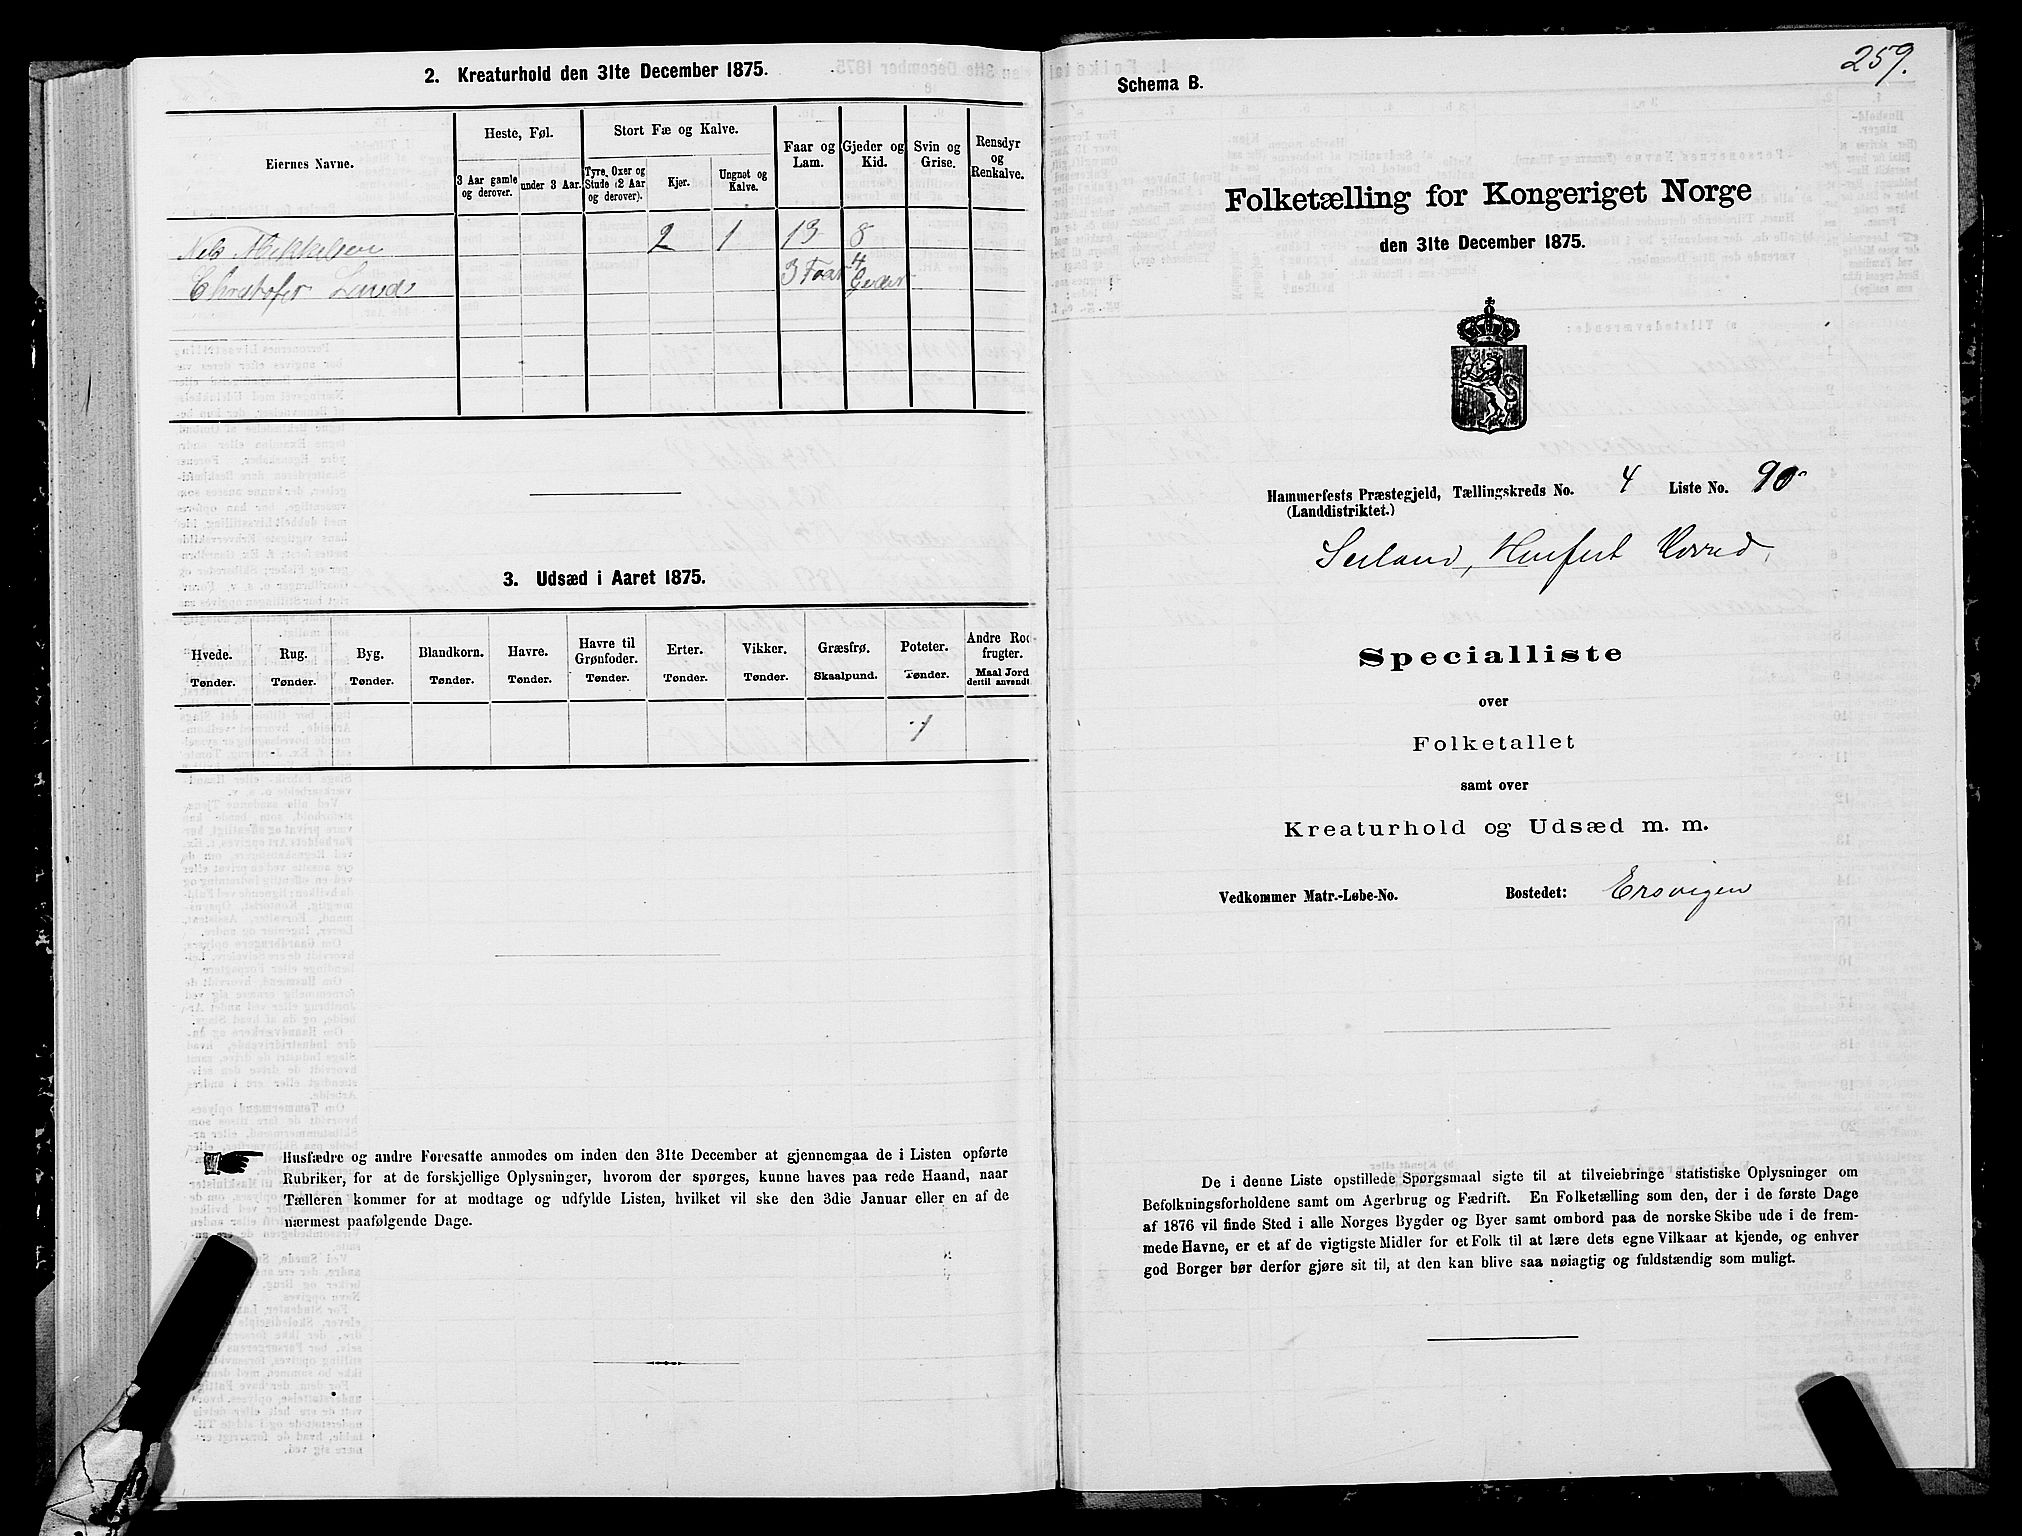 2. Kreaturhold den 31te December 1875.
Eiernes Navne.
Heste, Føl.
Stort Fæ og Kalve.
Faar og Lam.
Gjeder og Kid.
Svin og Grise.
Rensdyr og Renkalve.
3 Aar gamle og derover.
under 3 Aar.
Tyre, Oxer og Stude (2 Aar og derover).
Kjør.
Ungnøt og Kalve.
Nels Mikkelsen 2 1 13 8
Christofer 3 Faar 4 Geder
3. Udsæd i Aaret 1875.
Hvede. Rug. Byg. Blandkorn. Havre. Havre til Grønfoder. Erter. Vikker. Græsfrø. Poteter. Andre Rodfrugter.
Tønder. Tønder. Tønder. Tønder. Tønder. Tønder. Tønder. Tønder. Skaalpund. Tønder. Maal Jord dertil anvendt.
1
Husfædre og andre Foresatte anmodes om inden den 31te December at gjennemgaa de i Listen opførte
Rubriker, for at de forskjellige Oplysninger, hvorom der spørges, kunne haves paa rede Haand, naar
Tælleren kommer for at modtage og udfylde Listen, hvilket vil ske den 3die Januar eller en af de
nærmest paafølgende Dage.
259.
Schema B.
Folketælling for Kongeriget Norge
den 31te December 1875.
Hammerfests Præstegjeld, Tællingskreds No. 4 Liste No. 90
(Landdistriktet.)
Seiland,
Specialliste
over
Folketallet
samt over
Kreaturhold og Udsæd m. m.
Vedkommer Matr.-Løbe-No. Bostedet: Ersvigen
De i denne Liste opstillede Spørgsmaal sigte til at tilveiebringe statistiske Oplysninger om
Befolkningsforholdene samt om Agerbrug og Fædrift. En Folketælling som den, der i de første Dage
af 1876 vil finde Sted i alle Norges Bygder og Byer samt ombord paa de norske Skibe ude i de frem-
mede Havne, er et af de vigtigste Midler for et Folk til at lære dets egne Vilkaar at kjende, og enhver
god Borger bør derfor gjøre sit til, at den kan blive saa nøiagtig og fuldstændig som muligt.